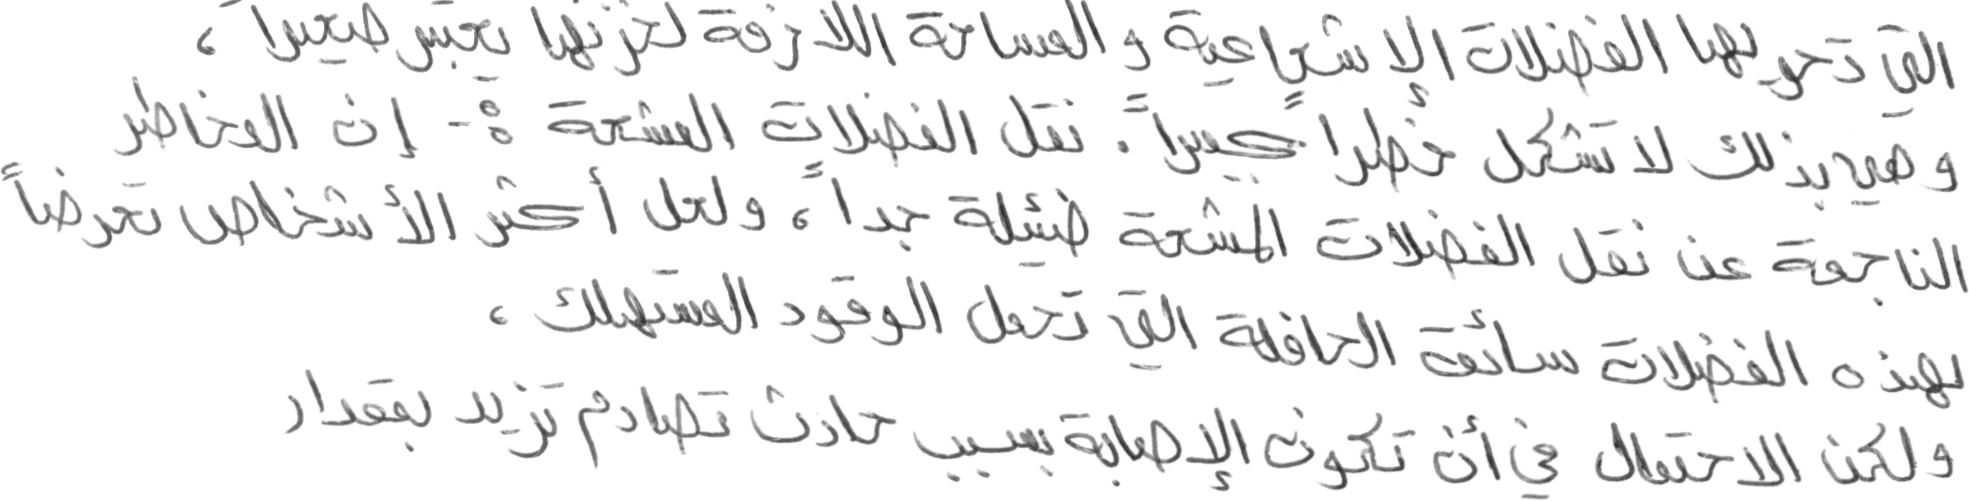 التي تحويها الفضلات الإشعاعية و المساحة اللازمة لخزنها يعتبر صغيراً ،
وهي بذلك لا تشكل خطراً كبيراً . نقل الفضلات المشعة :- إن المخاطر
الناجمة عن نقل الفضلات المشعة ضئيلة جداً ، ولعل أكثر الأشخاص تعرضاً
لهذه الفضلات سائق الحافلة التي تحمل الوقود المستهلك ،
ولكن الاحتمال في أن تكون الإصابة بسبب حادث تصادم تزيد بمقدار